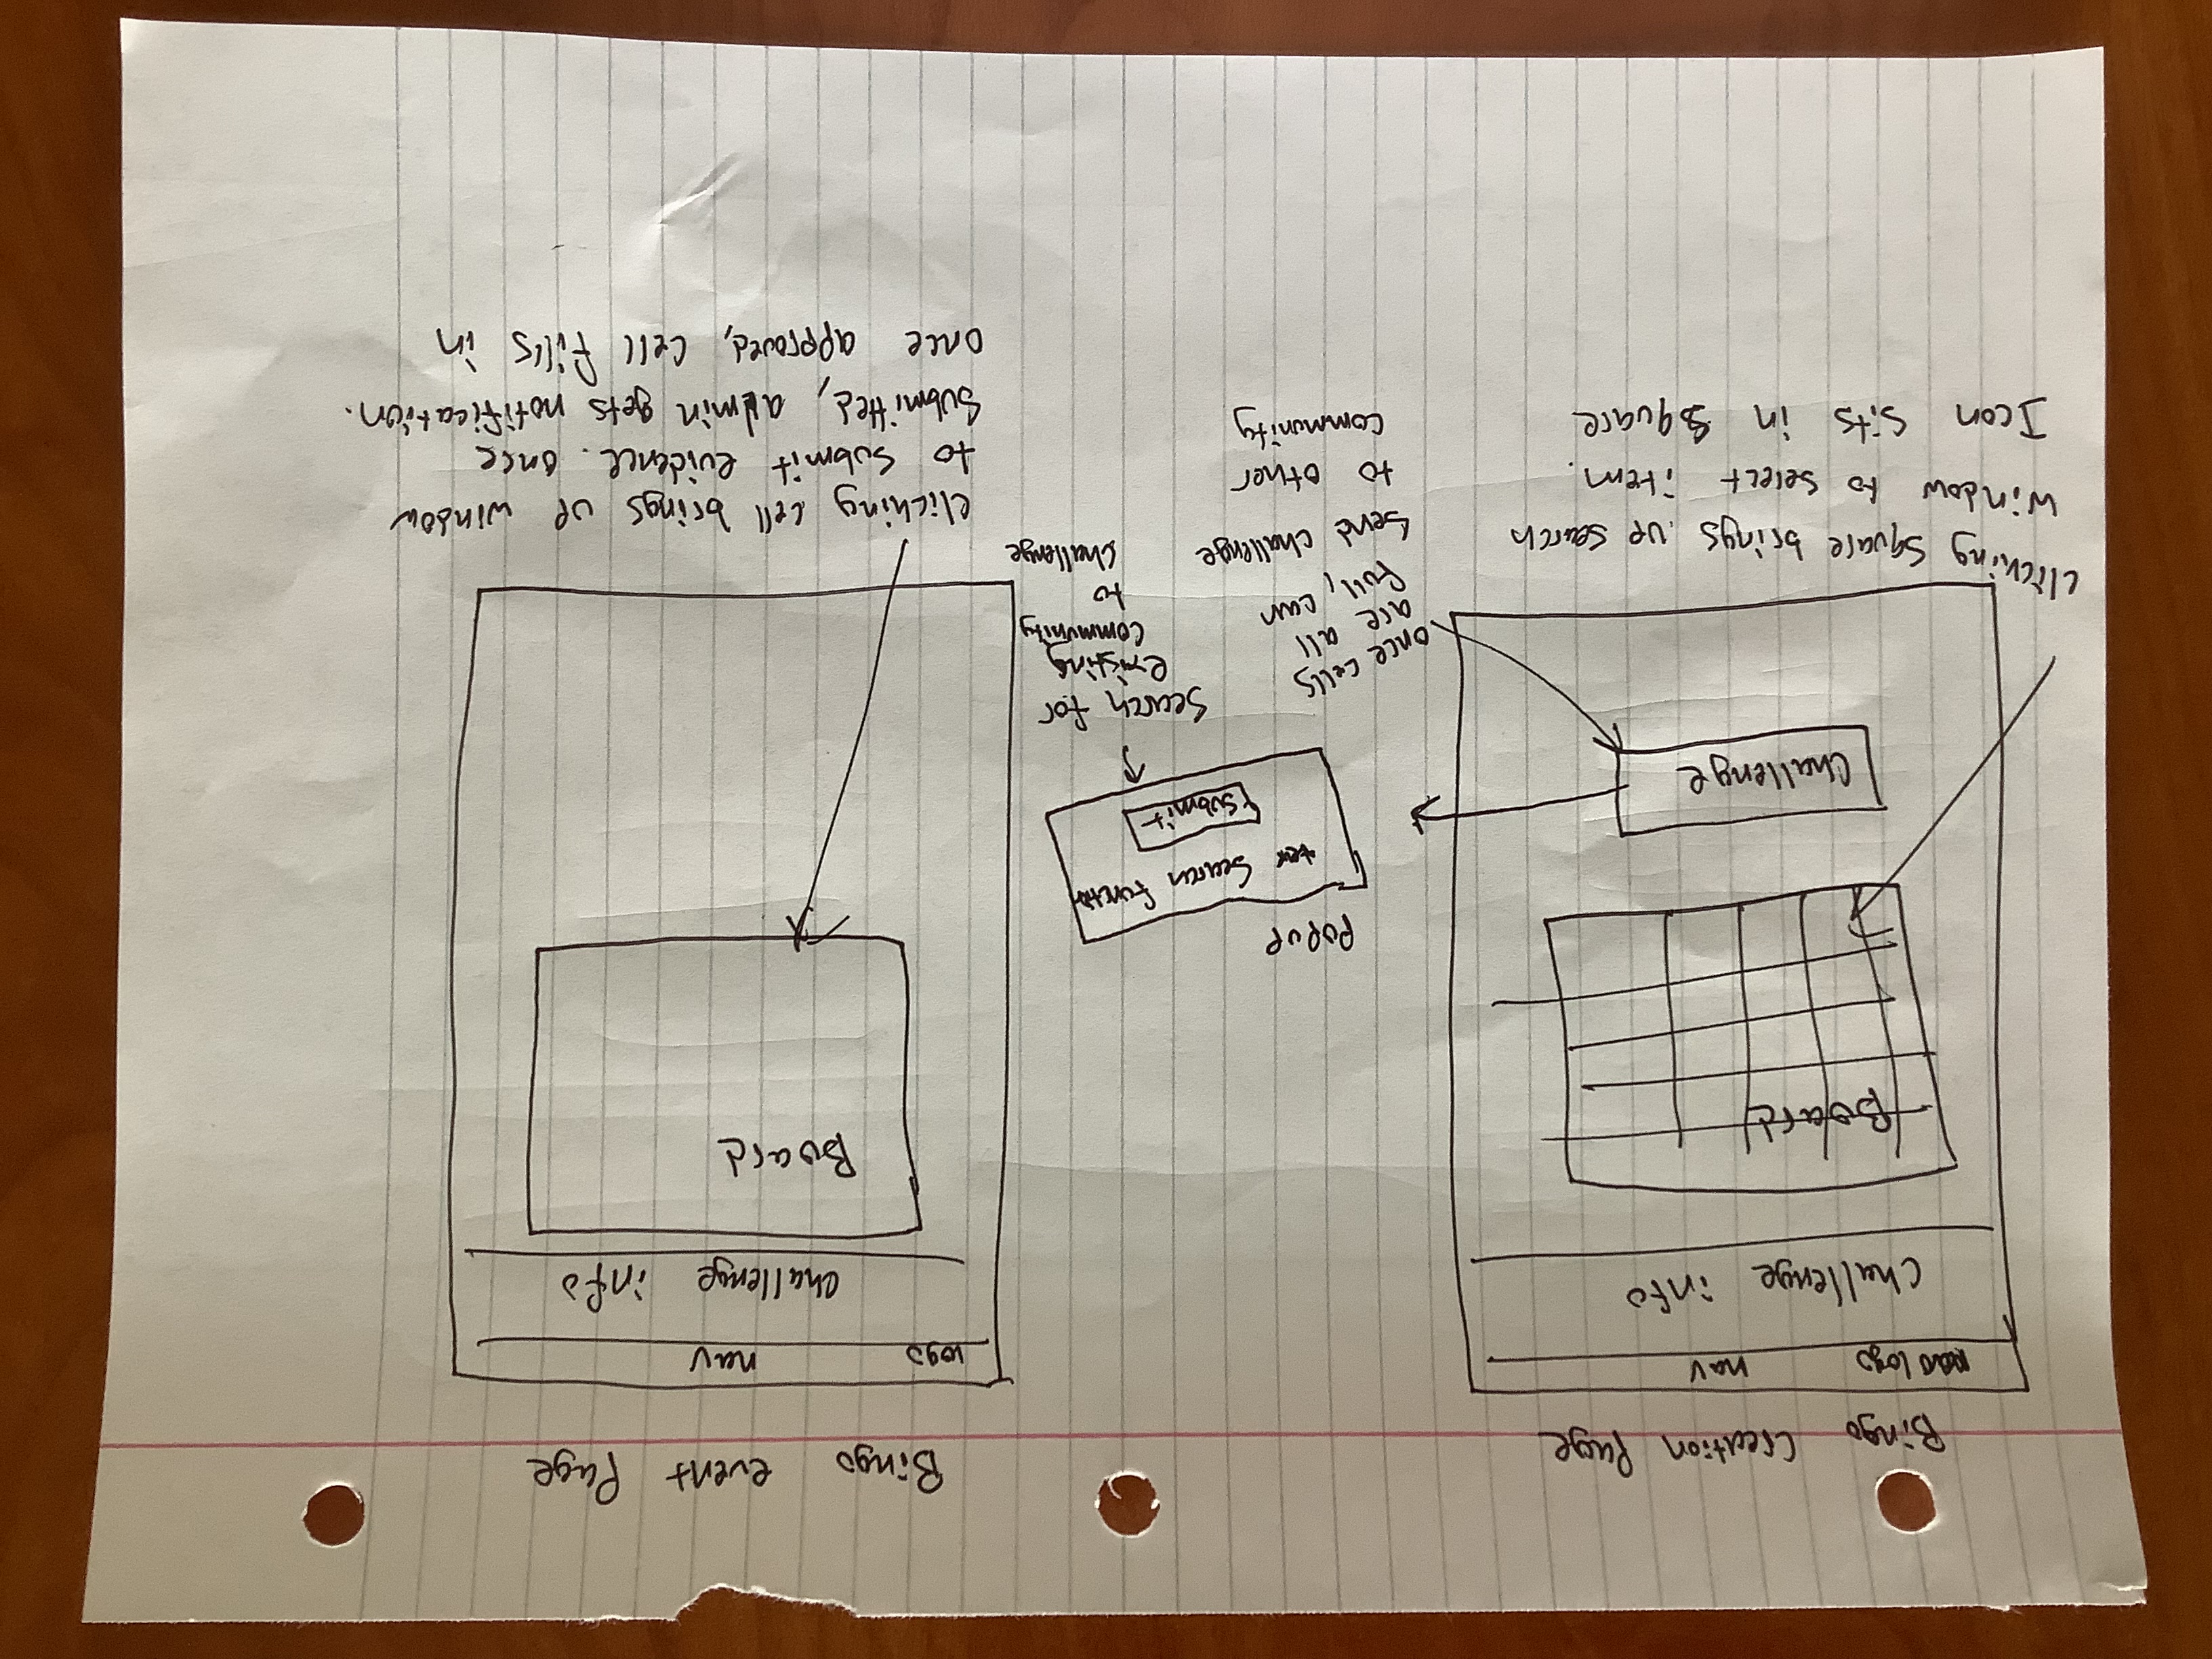 Bingo Creation Page
logo nav
Challenge info
Board
Challenge
Clicking Square brings up search
window to select item.
Icon sits in square
POPUP
Search function
Submit
once cells
are all
full, can
Send challenge
to other
community
Search for
existing
community
to
challenge
Bingo event Page
logo nav
Challenge info
Board
Clicking cell brings up window
to submit evidence. once
Submitted, admin gets notification.
once approved, cell fills in